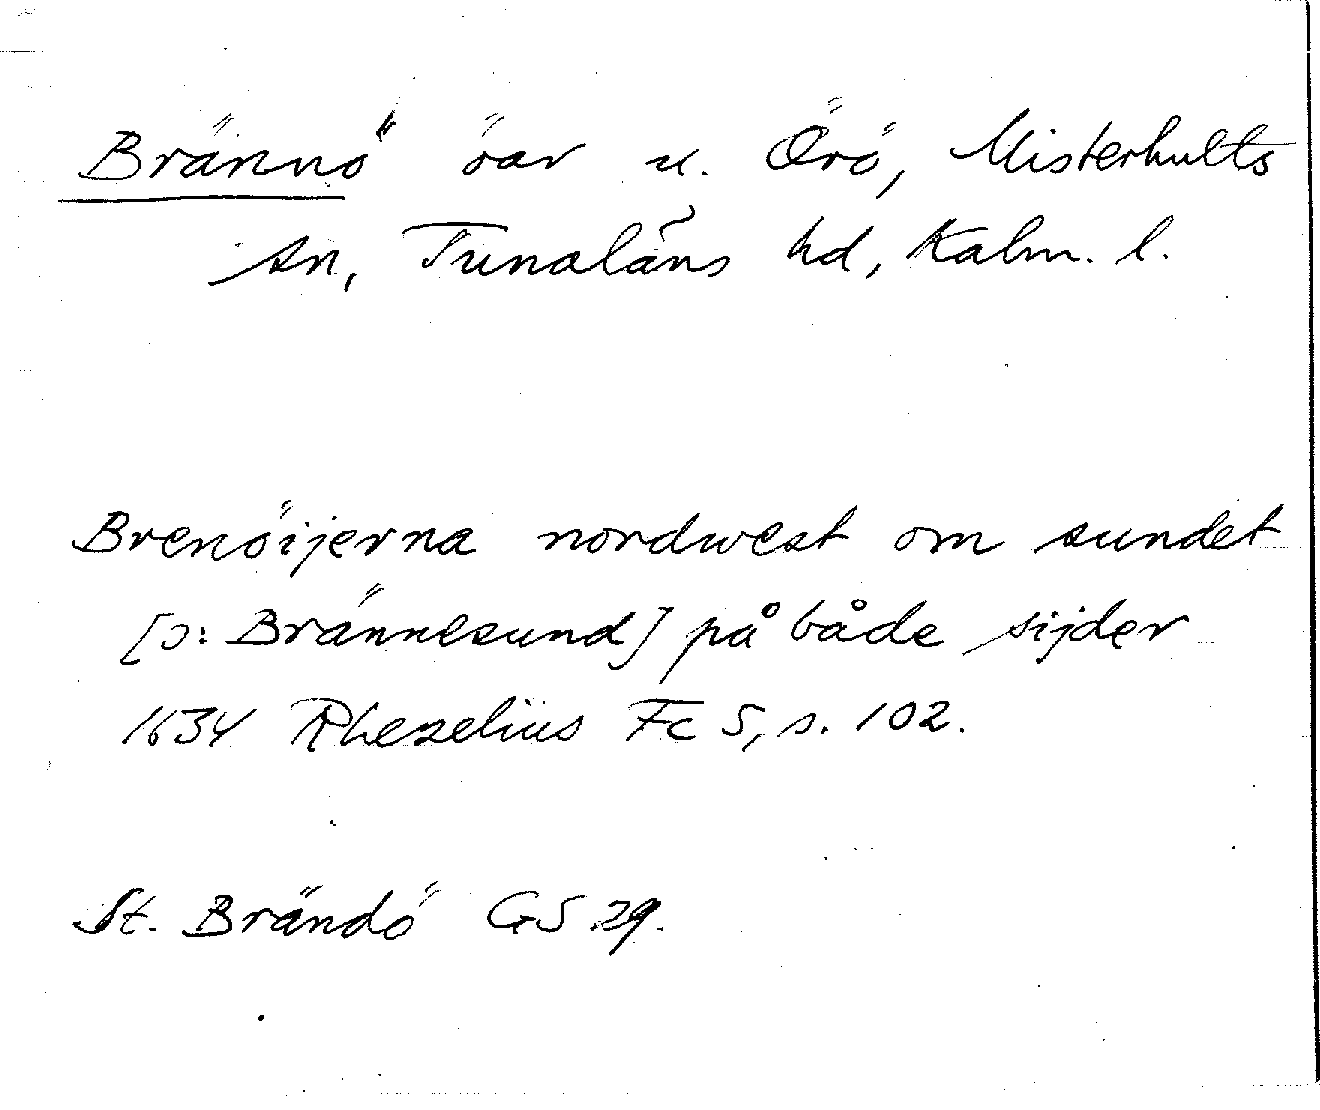 Brännö öar u. Örö, Misterhults
sn, Tunaläns hd, Kalm. l.
Brenöijerna nordwest om sundet
[ɔ: Brännesund] på både sijder
1634 Rhezelius Fc 5, s. 102.
St. Brändö GS 29.